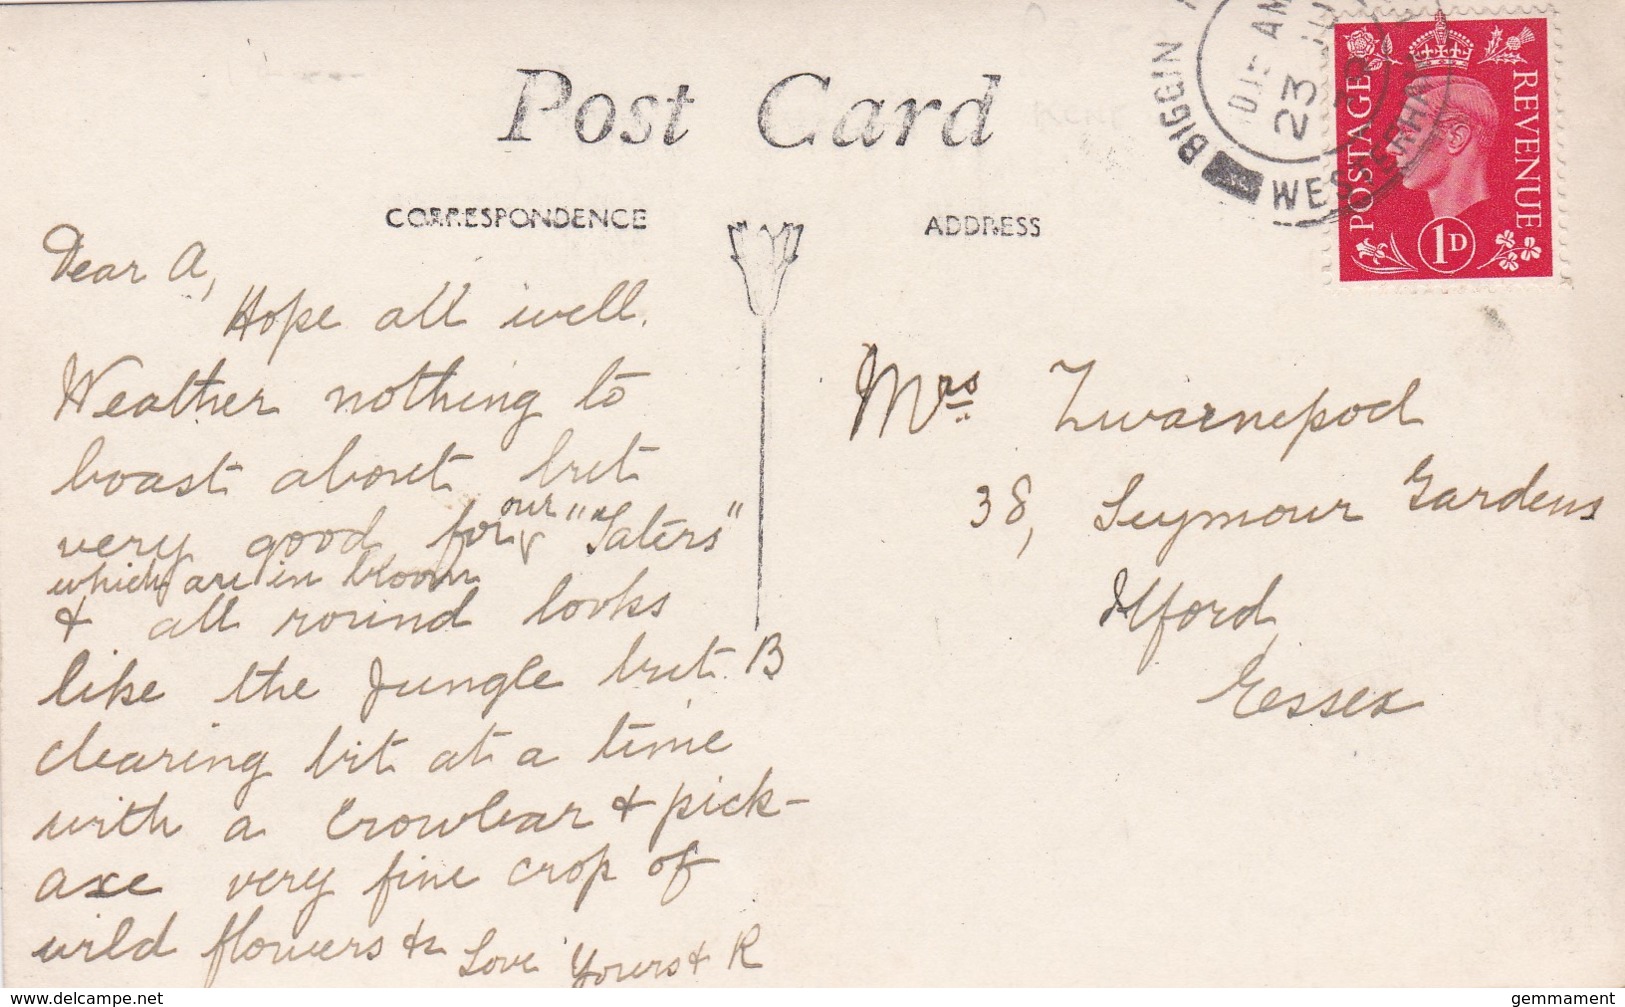 Post Card
CORRESPONDENCE
ADDRESS
BIGGIN
AM
23 JU
WESTERHAM
POSTAGE
REVENUE
1D
Dear A,
Hope all well.
Weather nothing to
boast about but
very good for our "Taters"
which are in bloom
& all round looks
like the Jungle but B
clearing bit at a time
with a Crowbar & pick-
axe very fine crop of
wild flowers &
Love Yours & R
Mrs Zwarnepod
38, Seymour Gardens
Ilford,
Essex
www.delcampe.net
gemmament